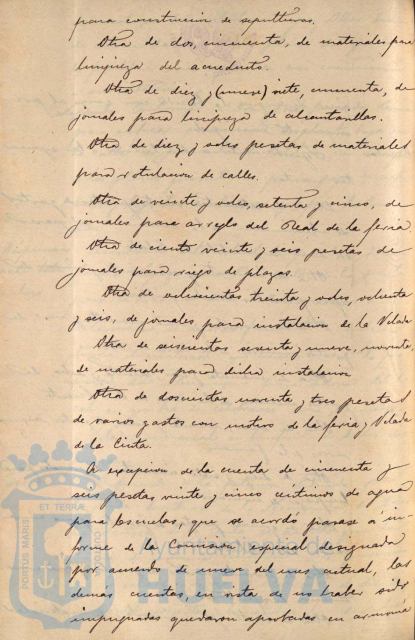 para construccion de sepulturas.
Otra de dos, cincuenta, de materiales para
limpieza del acueducto.
Otra de diez y (nueve) siete, cincuenta, de
jornales para limpieza de alcantarillas.
Otra de diez y ocho pesetas de materiales
para rotulacion de calles.
Otra de veinte y ocho, setenta y cinco, de
jornales para arreglo del Real de la feria
Otra de ciento veinte y seis pesetas de
jornales para riego de plazas.
Otra de ochocientas treinta y ocho, ochenta
y seis, de jornales para instalacion de la Velada
Otra de seiscientas sesenta y nueve, noventa,
de materiales para dicha instalacion
Otra de doscientas noventa y tres pesetas
de varios gastos con motivo de la feria y Velada
de la Cinta.
A excepcion de la cuenta de cincuenta y
seis pesetas veinte y cinco centimos de agua
para Escuelas, que se acordó pasase á in-
forme de la Comision especial designada
por acuerdo de nueve del mes actual, las
demas cuentas, en vista de no haber sido
impugnadas quedaron aprobadas en armonia
PORTUS MARIS ET TERRAE CUSTODIO
Ayuntamiento de
HUELVA